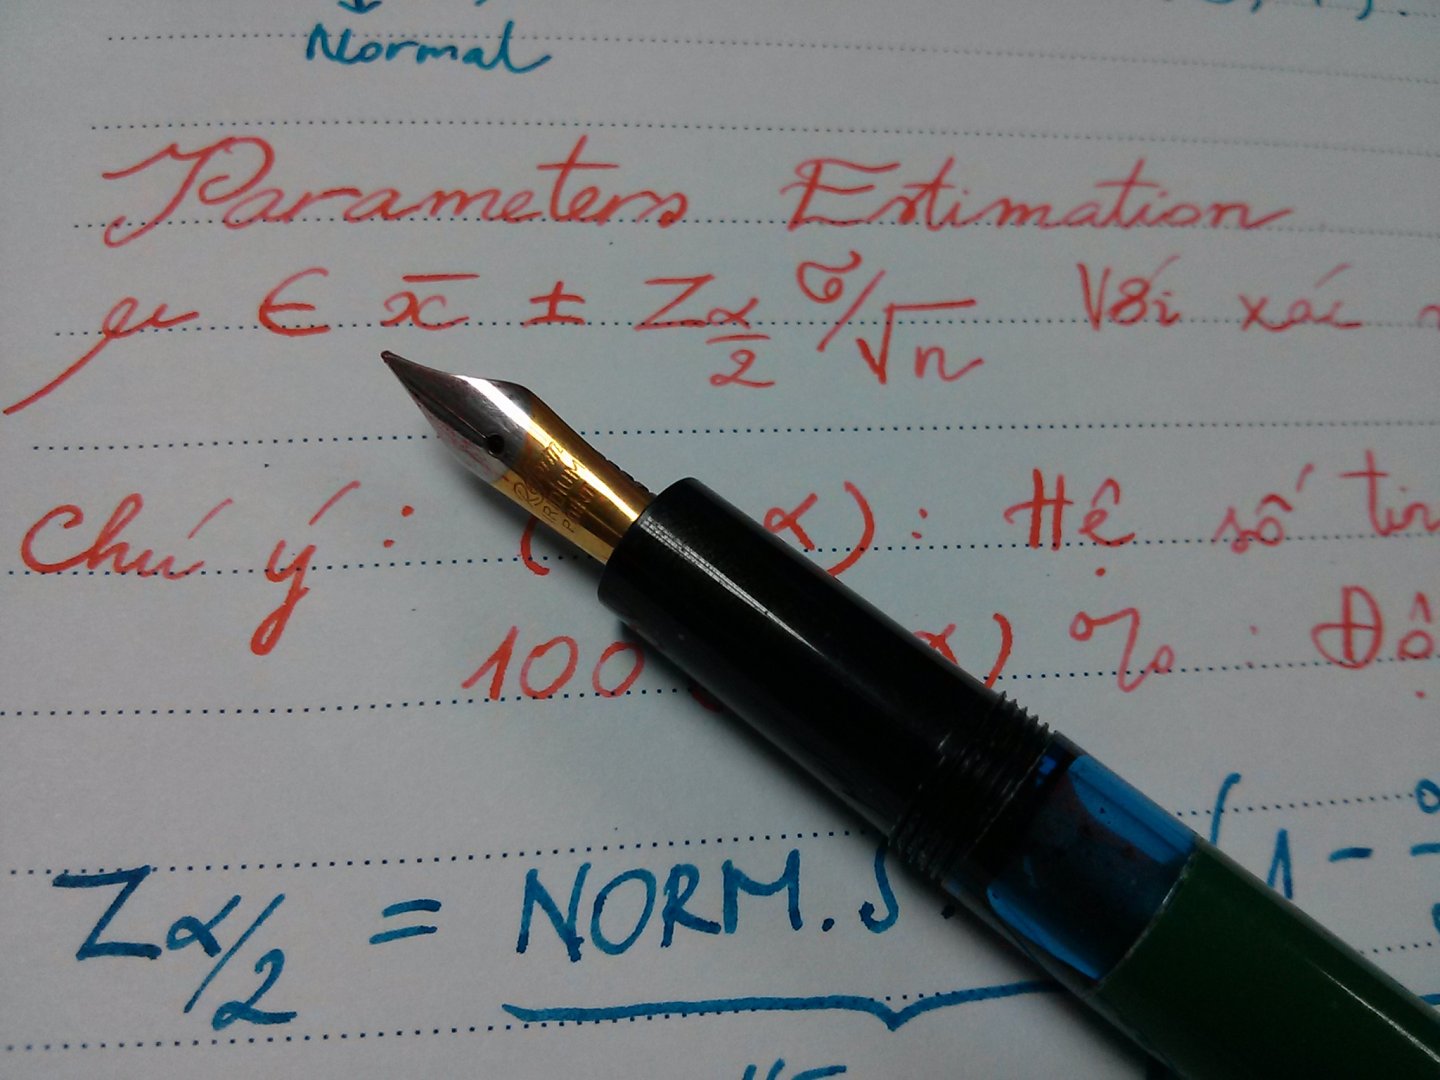 Normal
Parameters Estimation
μ ∈ x̄ ± Zα/2 σ/√n Với xác
Chú ý: ( α): Hệ số tin
100 α)% : Độ
IRIDIUM
POINT
Zα/2 = NORM.S. (1 -